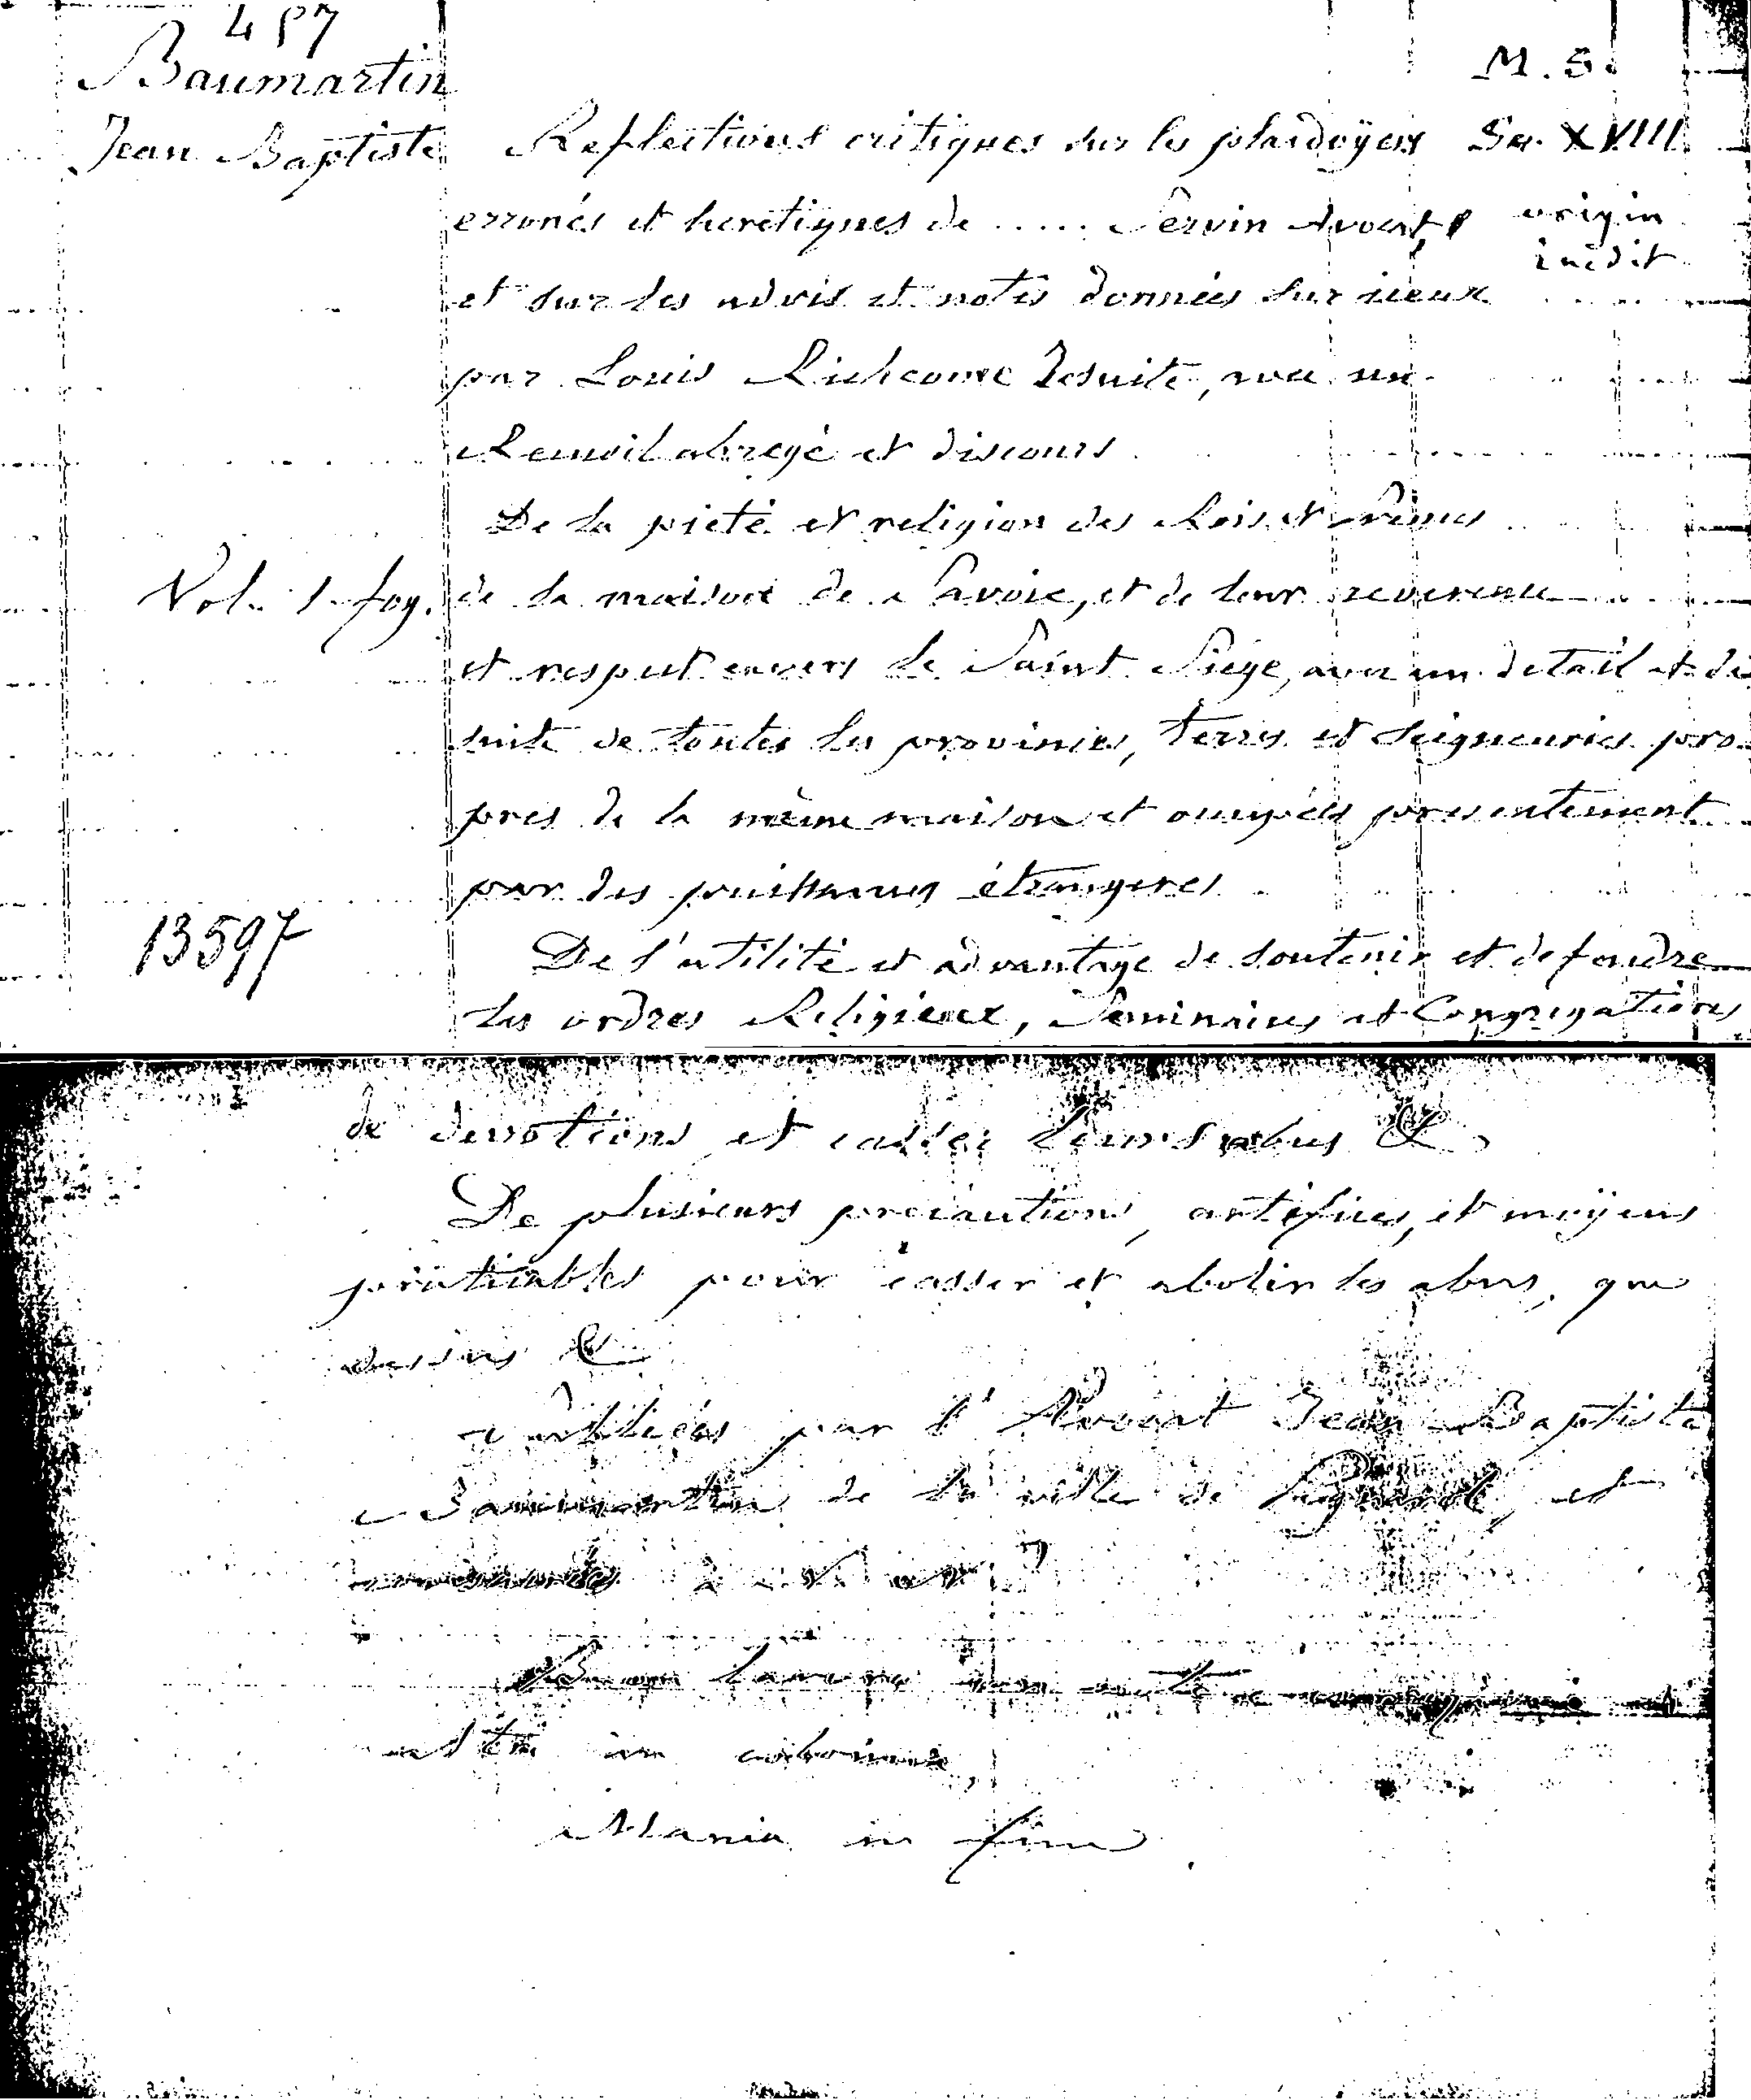 457
Baumartin
M. S.
Jean Baptiste Reflections critiques sur les plaidoÿers Sec. XVIII
erronés et heretiques de ..... Servin Avocat origin
inedit
et sur les advis et notes données sur iceux
par Louis Richeome Jesuite, avec un
Recueil abregé et discours
De la pieté et religion des Rois et Princes
Vol. 1. fog. de la maison de Savoie, et de leur reverence
et respect envers le Saint Siege, avec un detail et de
suite de toutes les provinces, terres et seigneuries pro-
pres de la même maison et occupées presentement
par des puissances étrangeres
13597
De l'utilité et advantage de soutenir et defendre
les ordres Religieux, Seminaires et Congregations
de devotions et casser leurs abus &
De plusieurs precautions, artifices, et moÿens
praticables pour casser et abolir les abus, que
dessus &
par l'Avocat Jean Baptiste
Baumartin de la ville de et
in
Mania in fine